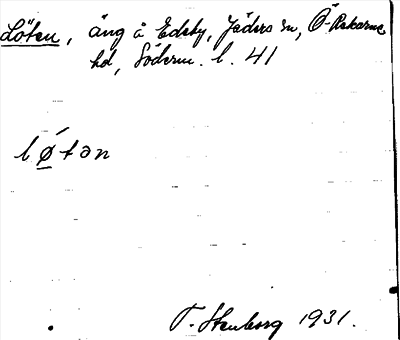 Löten, äng å Edeby, Jäders sn, Ö-Rekarne
hd, Söderm. l. 41
lø´tən
T. Stenborg 1931.